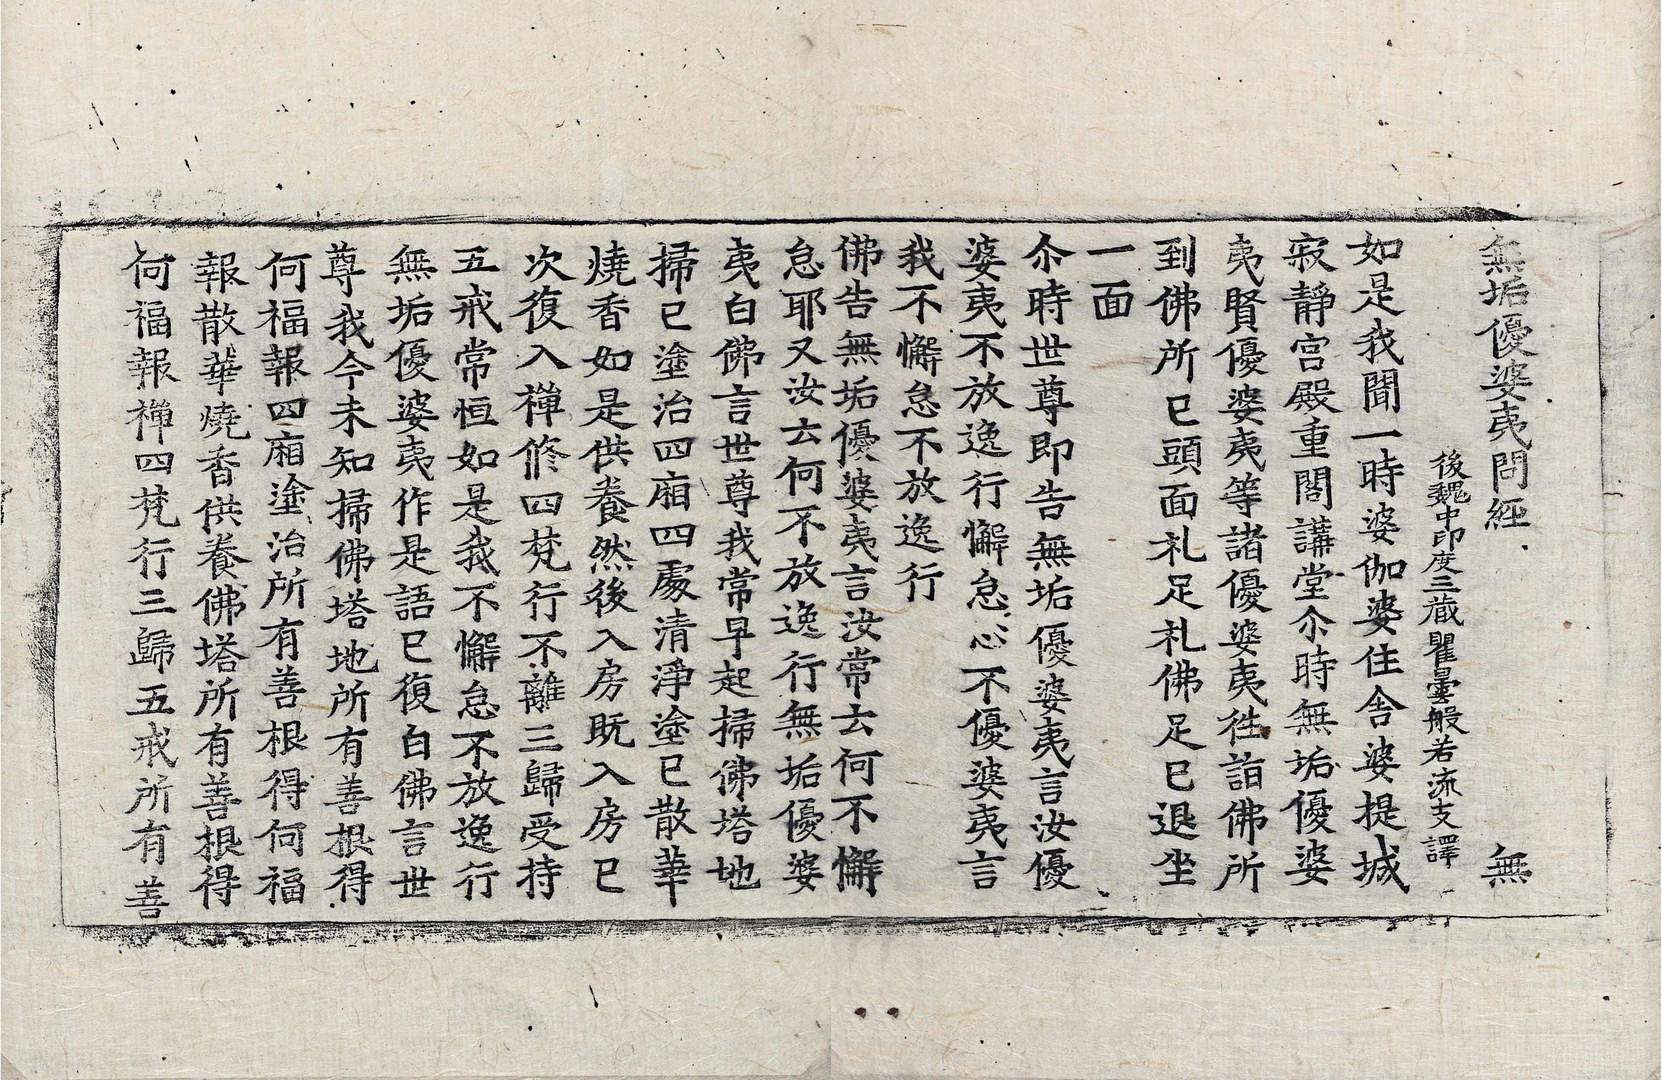 無垢優婆夷問經 無
後魏中印度三藏瞿曇般若流支譯
如是我聞一時婆伽婆住舍婆提城
寂靜宮殿重閣講堂尒時無垢優婆
夷賢優婆夷等諸優婆夷徃詣佛所
到佛所已頭面礼足礼佛足已退坐
一面
尒時世尊即告無垢優婆夷言汝優
婆夷不放逸行懈怠心不優婆夷言
我不懈怠不放逸行
佛告無垢優婆夷言汝常云何不懈
怠耶又汝云何不放逸行無垢優婆
夷白佛言世尊我常早起掃佛塔地
掃已塗治四廂四處清淨塗已散華
燒香如是供養然後入房既入房已
次復入禪修四梵行不離三歸受持
五戒常恒如是我不懈怠不放逸行
無垢優婆夷作是語已復白佛言世
尊我今未知掃佛塔地所有善根得
何福報四廂塗治所有善根得何福
報散華燒香供養佛塔所有善根得
何福報禪四梵行三歸五戒所有善